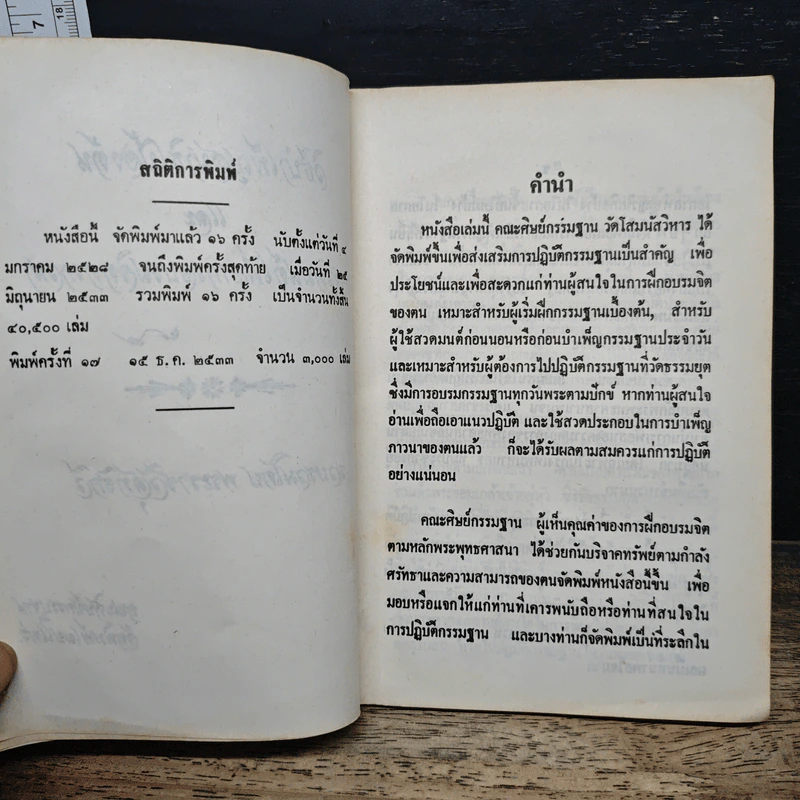 7
18
สถิติการพิมพ์
หนังสือนี้ จัดพิมพ์มาแล้ว ๑๖ ครั้ง นับตั้งแต่วันที่ ๔
มกราคม ๒๕๒๘ จนถึงพิมพ์ครั้งสุดท้าย เมื่อวันที่ ๒๕
มิถุนายน ๒๕๓๓ รวมพิมพ์ ๑๖ ครั้ง เป็นจำนวนทั้งสิ้น
๔๐,๕๐๐ เล่ม
พิมพ์ครั้งที่ ๑๗ ๑๕ ธ.ค. ๒๕๓๓ จำนวน ๓,๐๐๐ เล่ม
คำนำ
หนังสือเล่มนี้ คณะศิษย์กรรมฐาน วัดโสมนัสวิหาร ได้
จัดพิมพ์ขึ้นเพื่อส่งเสริมการปฏิบัติกรรมฐานเป็นสำคัญ เพื่อ
ประโยชน์และเพื่อสะดวกแก่ท่านผู้สนใจในการฝึกอบรมจิต
ของตน เหมาะสำหรับผู้เริ่มฝึกกรรมฐานเบื้องต้น, สำหรับ
ผู้ใช้สวดมนต์ก่อนนอนหรือก่อนบำเพ็ญกรรมฐานประจำวัน
และเหมาะสำหรับผู้ต้องการไปปฏิบัติกรรมฐานที่วัดธรรมยุต
ซึ่งมีการอบรมกรรมฐานทุกวันพระตามปักข์ หากท่านผู้สนใจ
อ่านเพื่อถือเอาแนวปฏิบัติ และใช้สวดประกอบในการบำเพ็ญ
ภาวนาของตนแล้ว ก็จะได้รับผลตามสมควรแก่การปฏิบัติ
อย่างแน่นอน
คณะศิษย์กรรมฐาน ผู้เห็นคุณค่าของการฝึกอบรมจิต
ตามหลักพระพุทธศาสนา ได้ช่วยกันบริจาคทรัพย์ตามกำลัง
ศรัทธาและความสามารถของตนจัดพิมพ์หนังสือนี้ขึ้น เพื่อ
มอบหรือแจกให้แก่ท่านที่เคารพนับถือหรือท่านที่สนใจใน
การปฏิบัติกรรมฐาน และบางท่านก็จัดพิมพ์เป็นที่ระลึกใน